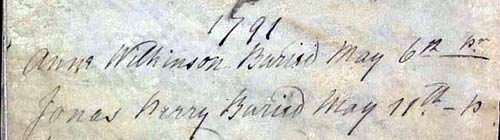 1791
Anne Wilkinson Buried May 6th pr
Jonas Perry Buried May 11th - p